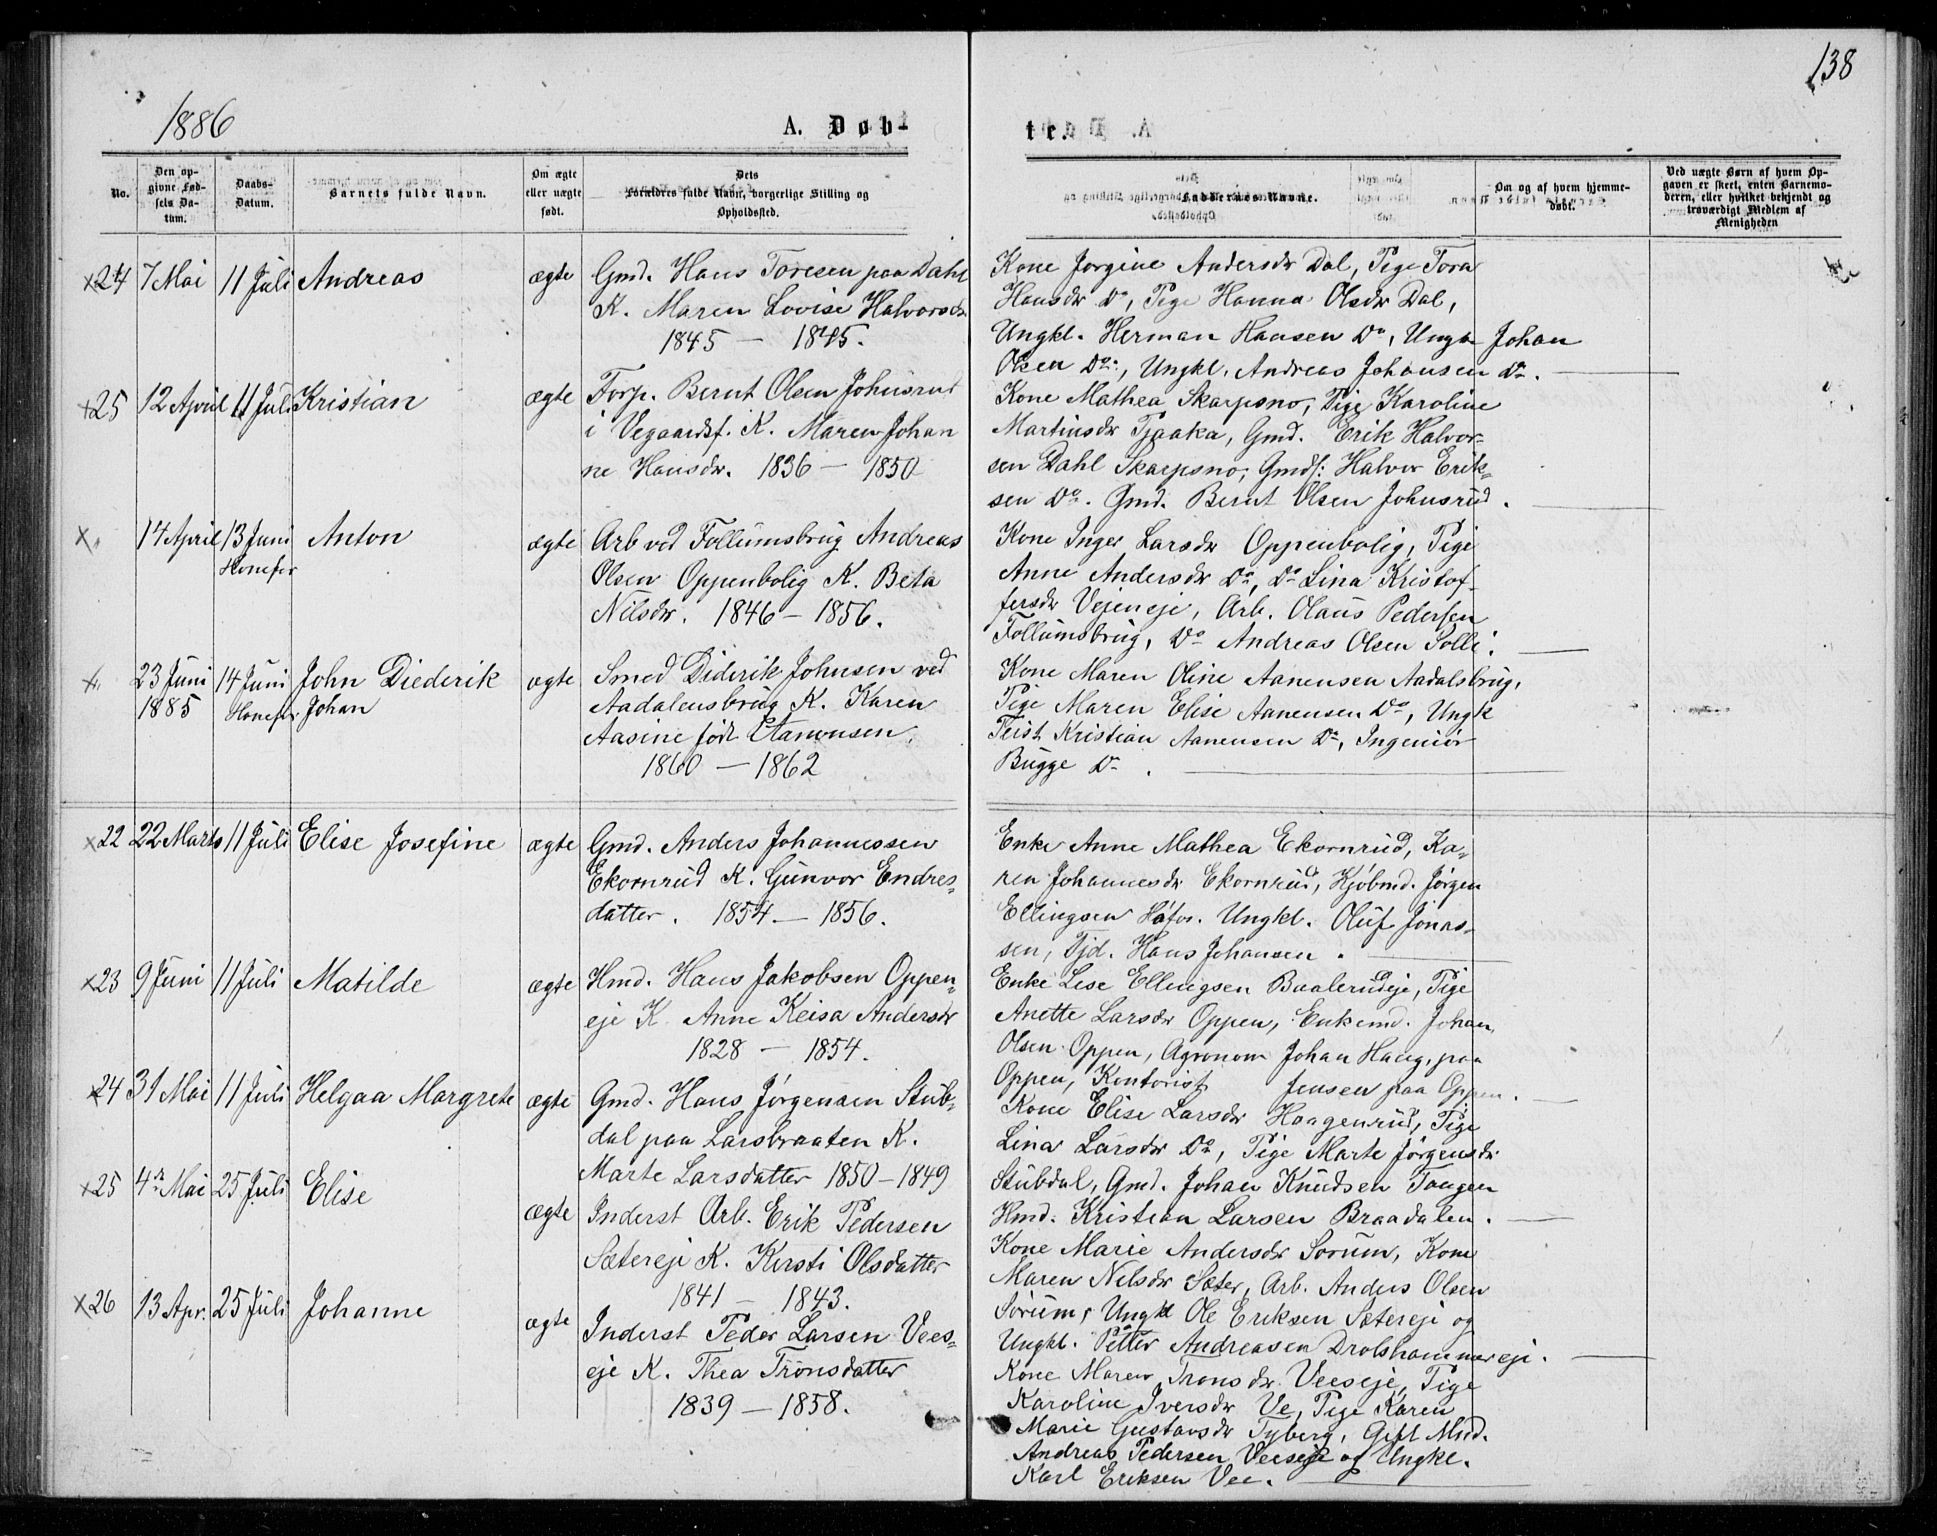 138
1886
A. Døb-
te.
No.
Den op-
givne Fød-
sels Da-
tum.
Daabs-
Datum.
Barnets fulde Navn.
Om ægte
eller uægte
født.
Dets
Forældres fulde Navn, borgerlige Stilling og
Opholdssted.
Faddernes Navne.
Om og af hvem hjemme-
døbt.
Ved uægte Børn af hvem Op-
gaven er skeet, enten Barnemo-
deren, eller hvilket bekjendt og
troværdigt Medlem af
Menigheden
24 7 Mai 11 Juli Andreas ægte Gmd. Hans Toresen paa Dahl
K. Maren Lovise Halvorsdr.
1845 — 1845.
Kone Jørgine Andersdr Dal, Pige Tora
Hansdr Do, Pige Hanna Olsdr Dal,
Ungkl. Herman Hansen Do, Ungk Johan
Olsen Do:, Ungkl. Andreas Johansen Do.
25 12 April 11 Juli Kristian ægte Forp. Bernt Olsen Johnsrud
i Vegaardsf. K. Maren Johan
ne Hansdr. 1836 — 1850
Kone Mathea Skarpsno, Pige Karoline
Martinsdr Tjaaka, Gmd. Erik Halvor-
sen Dahl Skarpsno, Gmds: Halvor Erik-
sen Do. Gmd. Bernt Olsen Johnsrud.
14 April 13 Juni Anton ægte Arb ved Follumsbrug Andreas
Honefos
Olsen Oppenbolig K. Beta
Nilsdr. 1846 — 1856.
Kone Inger Larsdr Oppenbolig, Pige
Anne Andersdr Do, Do Lina Kristof-
fersdr Vejeneje, Arb. Olaus Pedersen
Follumsbrug, Do Andreas Olsen Solli.
23 Juni 14 Juni John Diederik ægte Smed Diderik Johnsen ved
1885 Honefos Johan
Aadalensbrug K. Karen
Aasine født Aanonsen
1860 — 1862
Kone Maren Oline Aanensen Aadalsbrug,
Pige Maren Elise Aanensen Do, Ungk
Teist Kristian Aanensen Do, Ingeniør
Bugge Do.
22 22 Marts 11 Juli Elise Josefine ægte Gmd. Anders Johannessen
Ekornrud K. Gunvor Endres-
datter. 1854 — 1856.
Enke Anne Mathea Ekornrud, Ka-
ren Johannesdr Ekornrud, Kjøbmd. Jørgen
Ellingsen Høfos. Ungkl. Oluf Jonas-
sen, Tjd. Hans Johansen.
23 9 Juni 11 Juli Matilde ægte Hmd. Hans Jakobsen Oppen-
eje K. Anne Keisa Andersdr
1828 — 1854.
Enke Lise Ellingsen Baalerudeje, Pige
Anette Larsdr Oppen, Enkemd. Johan
Olsen Oppen, Agronom Johan Haug, paa
Oppen, Kontorist Jensen paa Oppen.
24 31 Mai 11 Juli Helgaa Margrete ægte Gmd. Hans Jørgensen Stub-
dal paa Larsbraaten K.
Marte Larsdatter 1850 — 1849
Kone Elise Larsdr Haagenrud, Pige
Lina Larsdr Do, Pige Marte Jørgensdr
Stubdal, Gmd. Johan Knudsen Tangen
Hmd. Kristian Larsen Braadalen.
25 4de Mai 25 Juli Elise ægte Inderst Arb. Erik Pedersen
Sætereje K. Kersti Olsdatter
1841 — 1843.
Kone Marie Andersdr Sorum, Kone
Maren Nilsdr Sæter, Arb. Anders Olsen
Sørum, Ungk Ole Eriksen Sætereje og
Ungkl. Petter Andreasen Drolshammereje.
26 13 Apr. 25 Juli Johanne ægte Inderst Peder Larsen Vees-
eje K. Thea Trønsdatter
1839 — 1858.
Kone Maren Tronsdr Veeseje, Pige
Karoline Iversdr Ve, Pige Karen
Marie Gustavsdr Tyberg, Gift Mnd.
Andreas Pedersen Veeseje og Ungkl.
Karl Eriksen Vee.